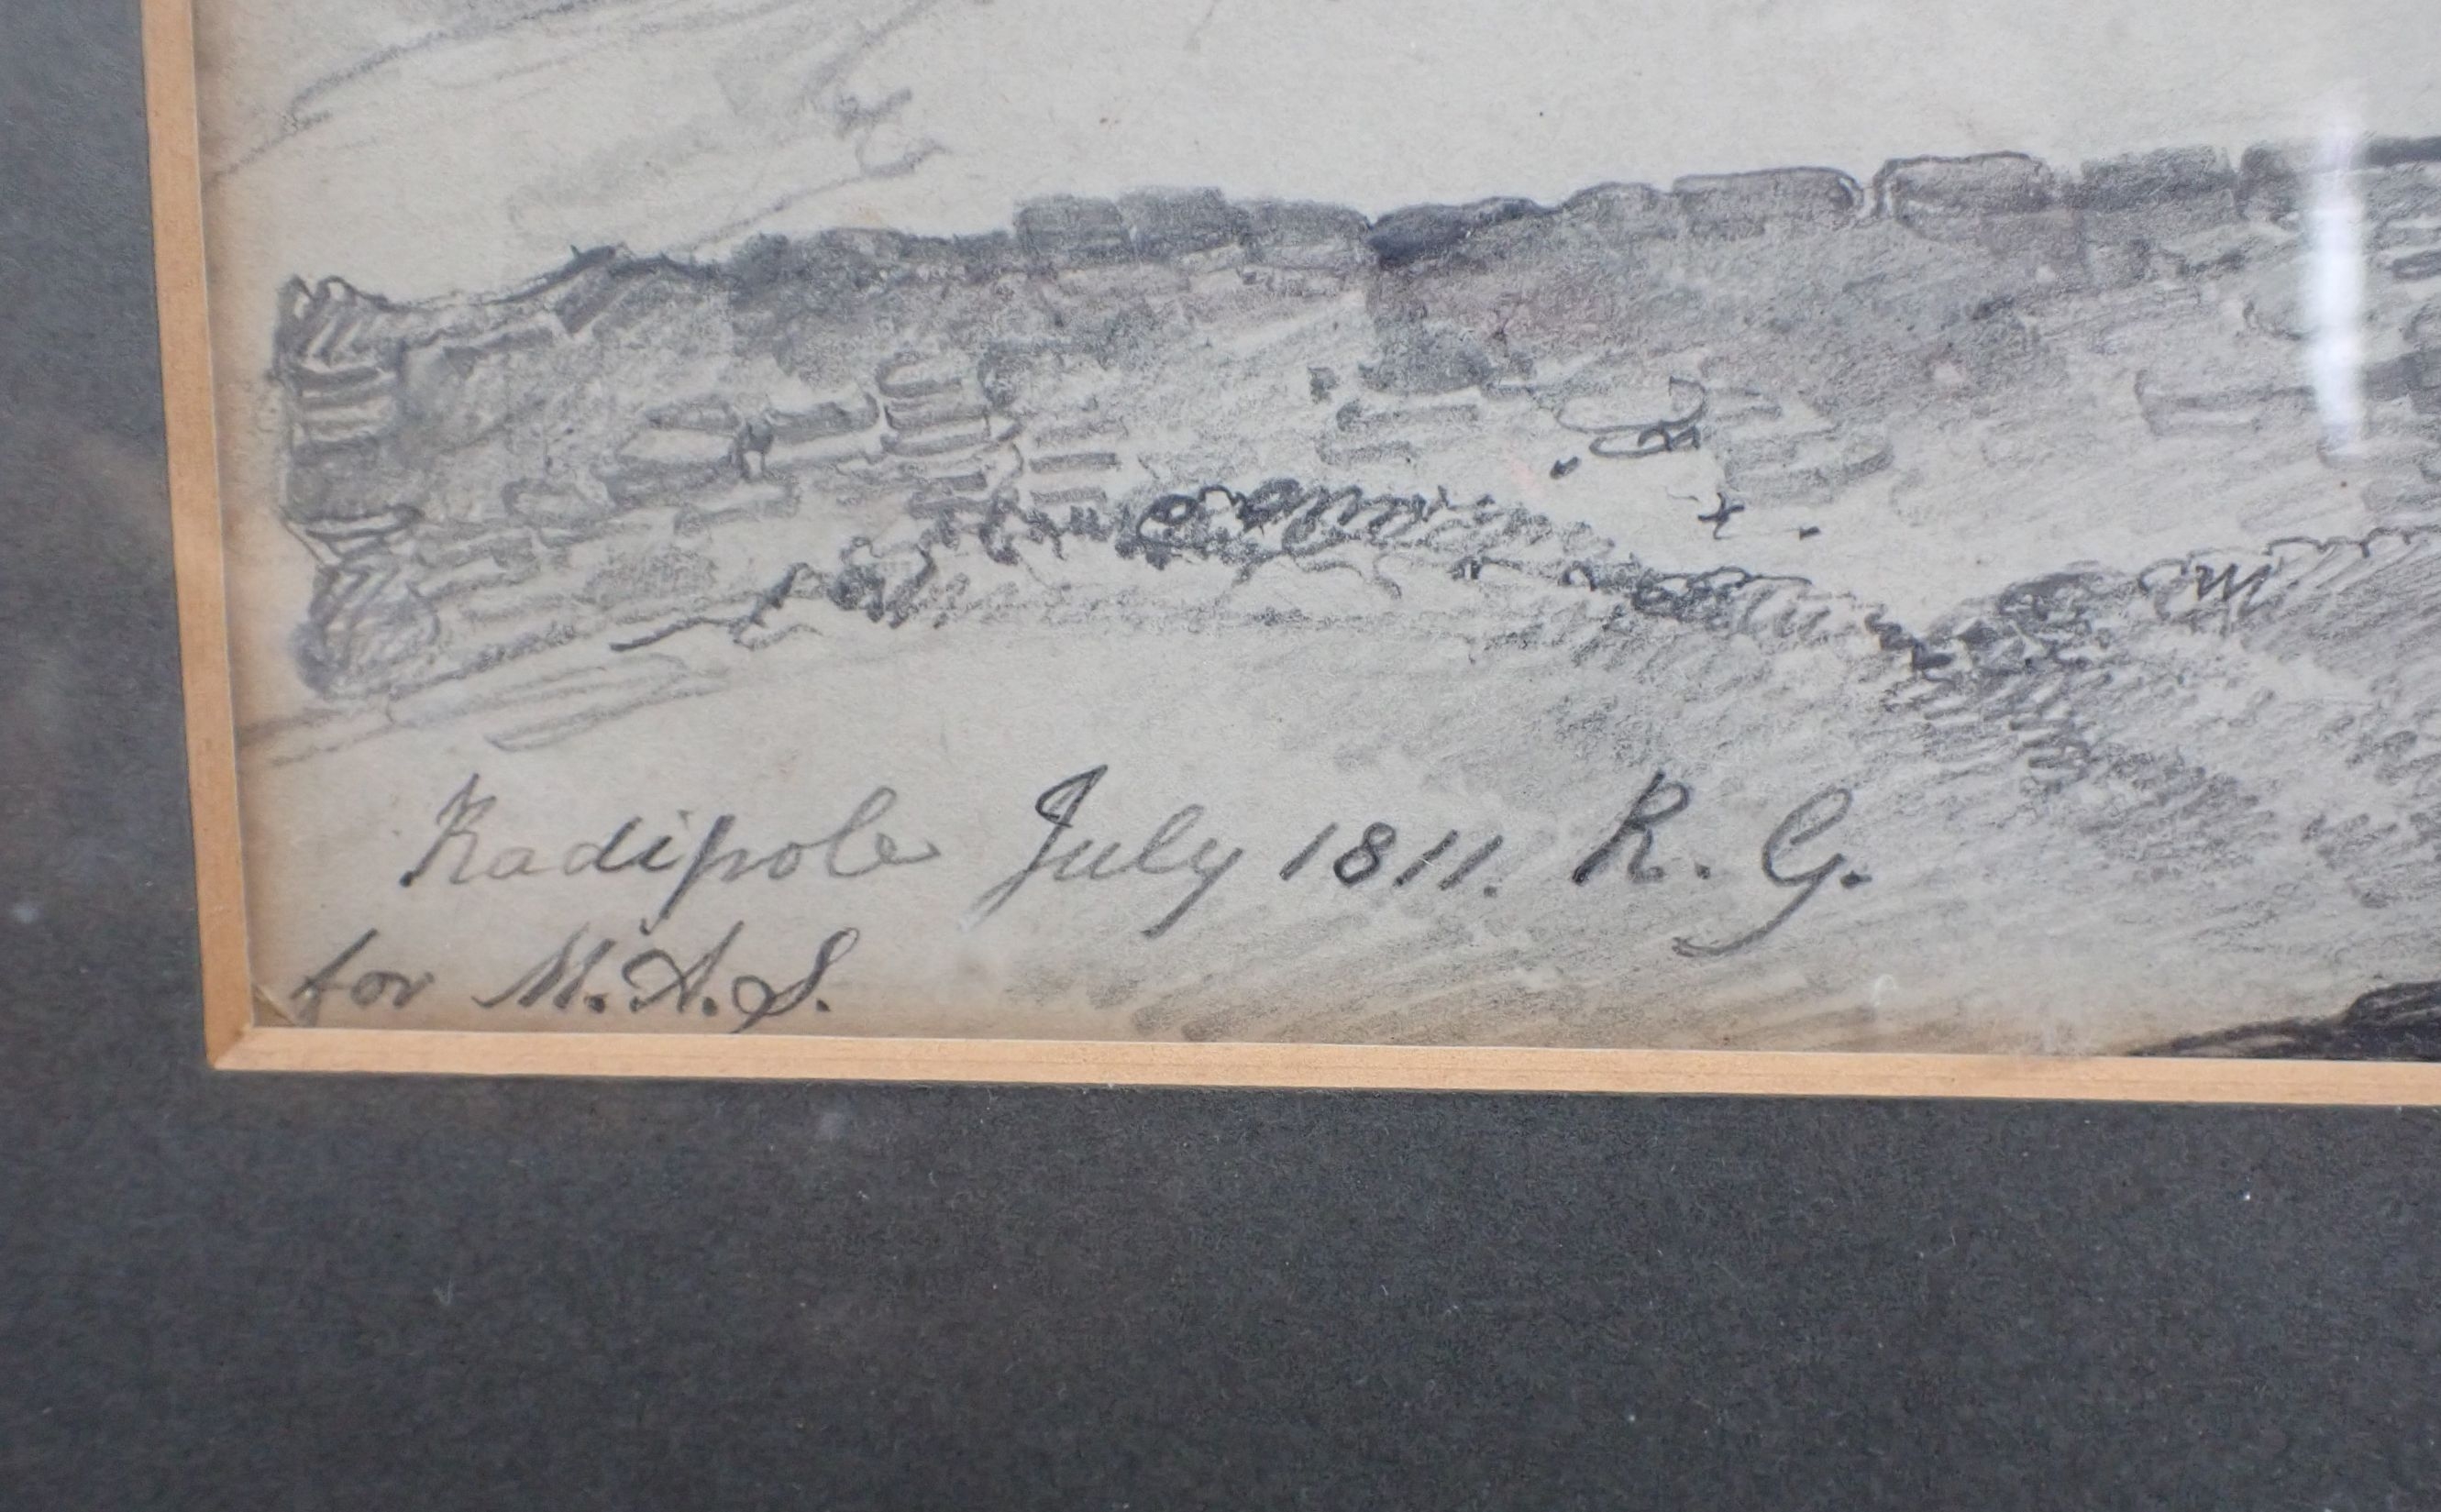 Radipole July 1811. R. G.
for M. A. S.